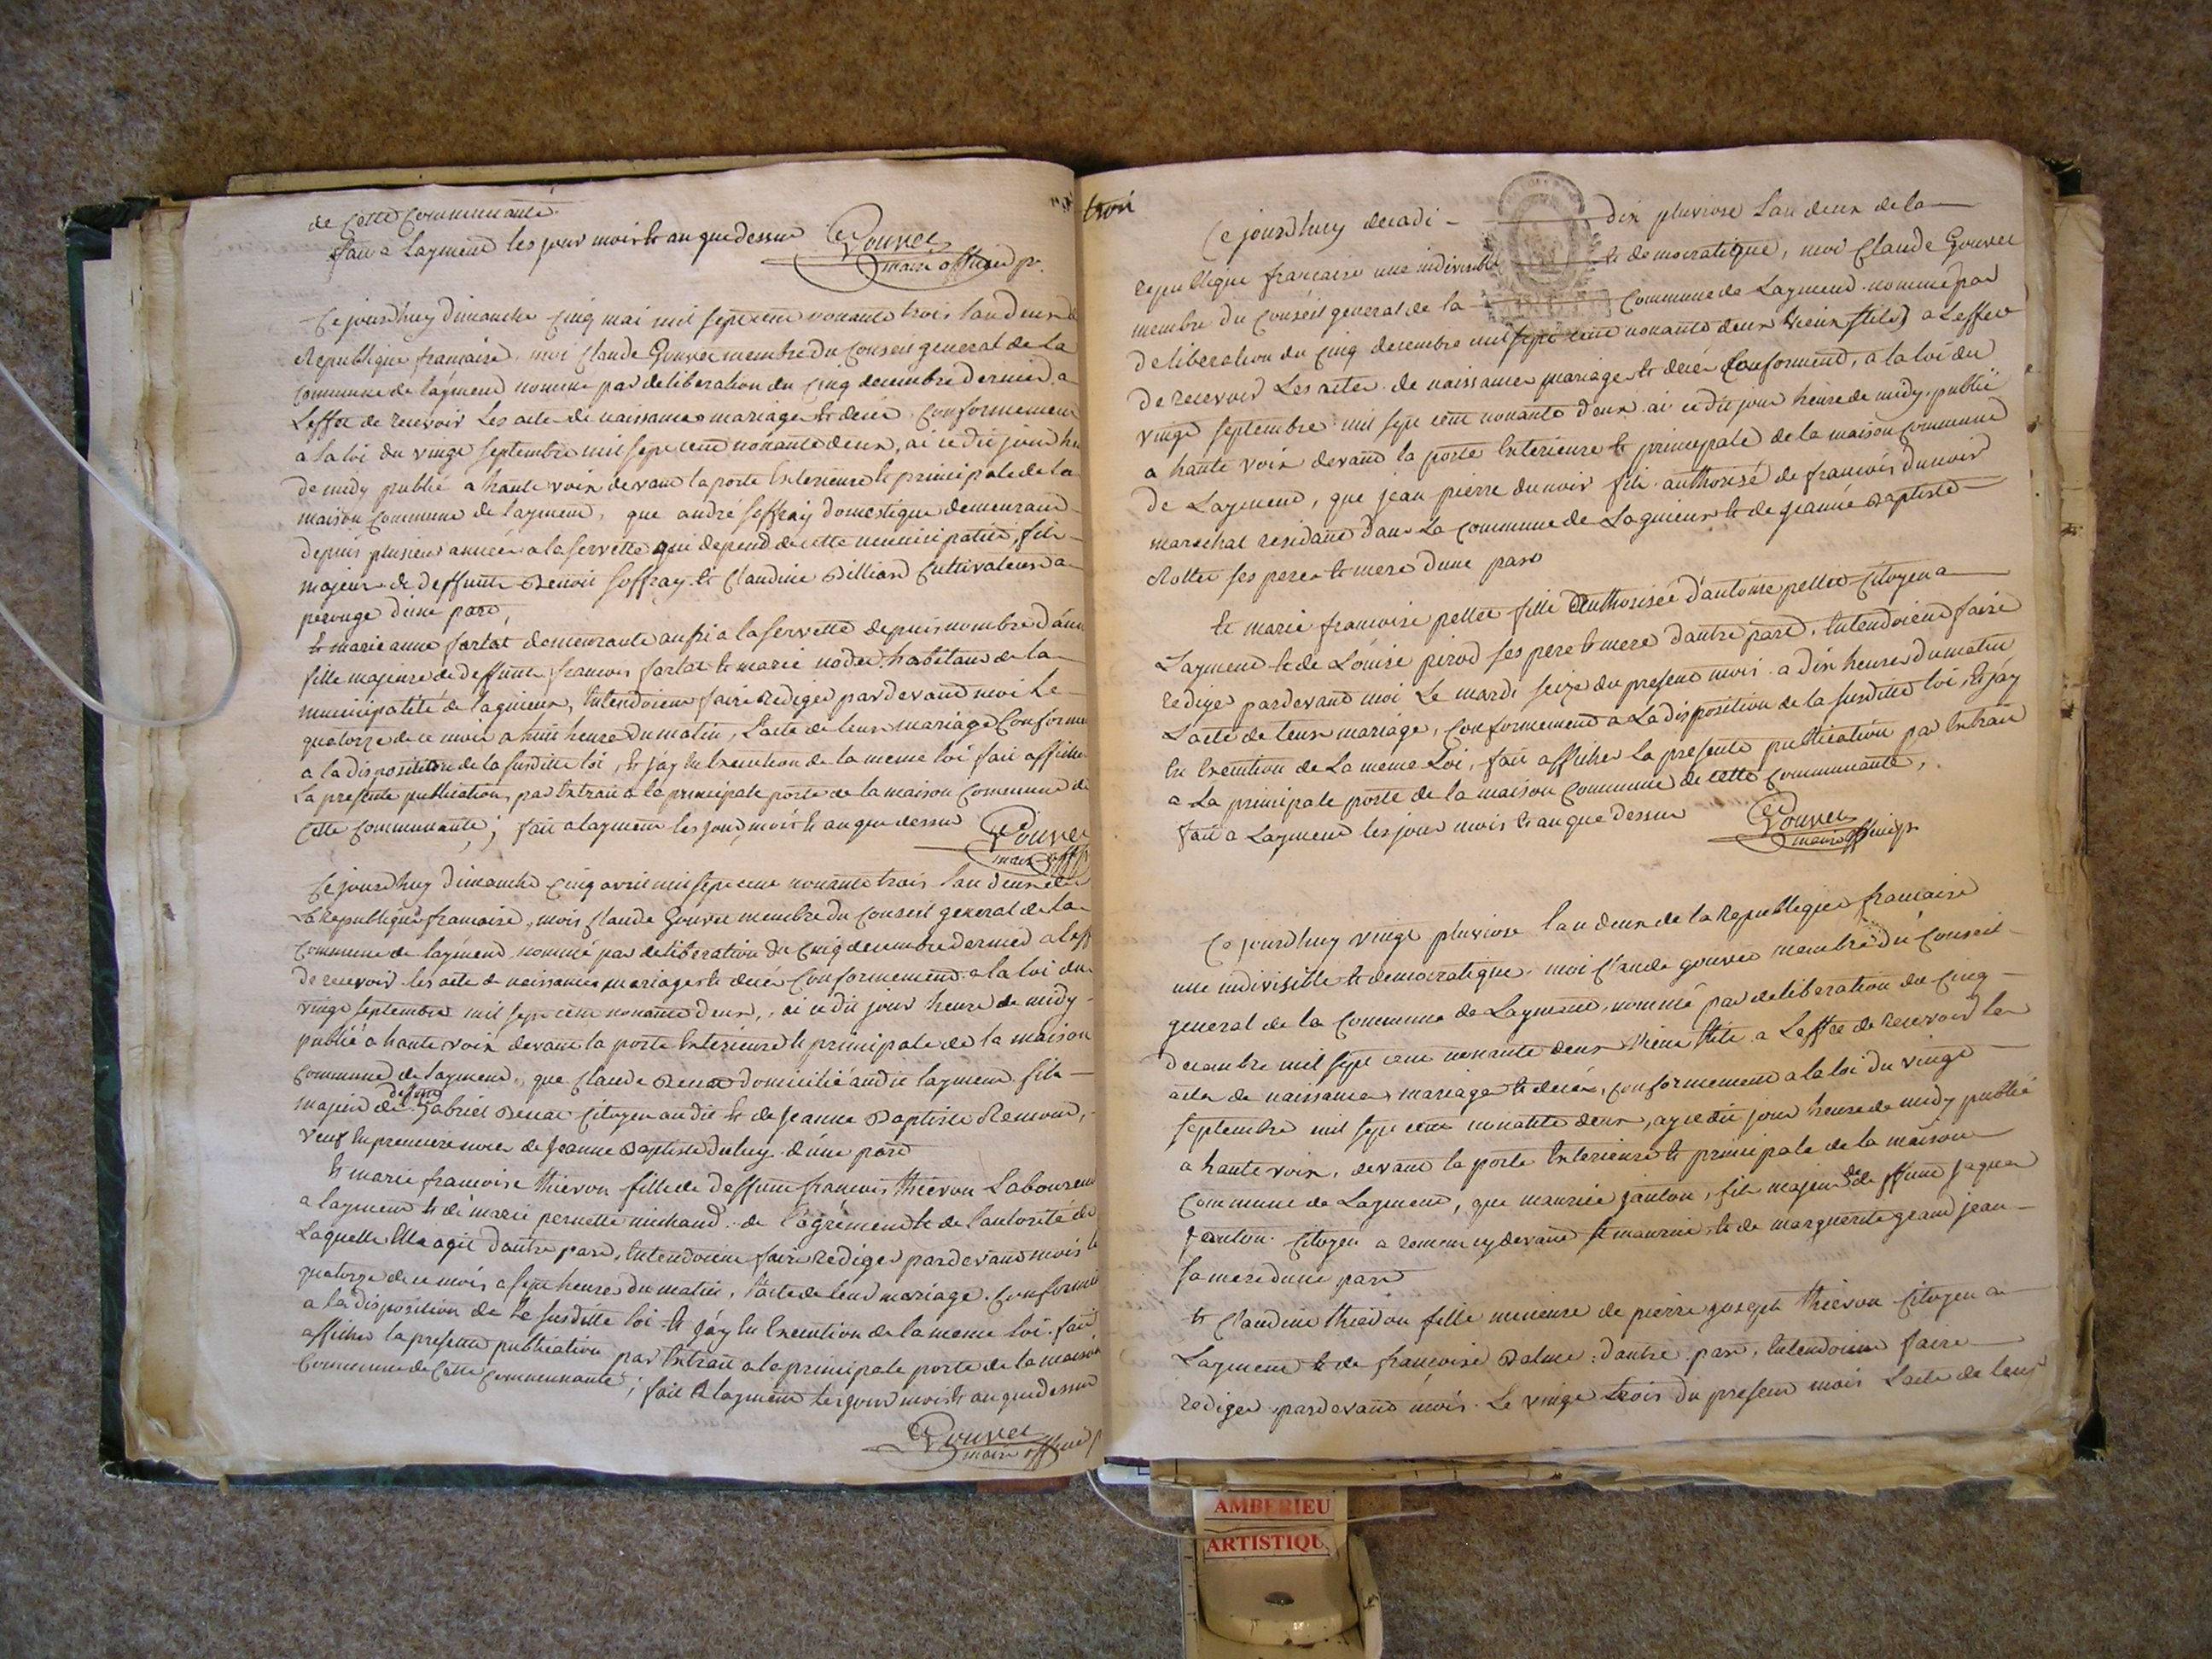 de cette Communauté
fait a Layment les jour mois et an que dessus Gouvet
maire officier p.
Ce jourdhuy dimanche cinq mai mil sept cent nonante trois lan deux de
Republique francaise, moi Claude Gouvet membre du Conseil general de la
commune de layment nommé par deliberation du cinq decembre dernier a
Leffet de recevoir Les acte de naissances mariage et decés conformement
a la loi du vingt septembre mil sept cent nonante deux, ai ce dit jour he
de midy publié a haute voix devant la porte Exterieure et principale de la
maison commune de layment, que andré soffray domestique demeurant
depuis plusieurs années a la servette qui depend de cette municipalité, fils
majeur de deffunt Benoit soffray et Claudine Billiard Cultivateurs a
perouge d'une part,
et marie anne fartat demeurante aussi a la servette depuis nombre d'ann
fille majeure de deffunt francois fartat et marie nodet habitans de la
municipalité de lagnieux, Entendoient faire Rediger pardevant moi le
quatorze de ce mois a huit heures du matin, L'acte de leur mariage Conforme
a la disposition de la susditte loi, et j'ay En Execution de la meme loi fait afficher
La presente publication, par Extrait a la principale porte de la maison Commune de
Cette communauté; fait a layment les jour mois et an que dessus Gouvet
maire off
Ce jourdhuy dimanche cinq avril mil sept cent nonante trois lan deux de
La Republique francaise, mois Claude Gouvet membre du Conseil general de la
commune de layment nommé par deliberation du cinq decembre dernier a leff
de recevoir les acte de naissances mariages et decés conformement a la loi du
vingt septembre mil sept cent nonante deux, ai ce dit jour heure de midy
publié a haute voix devant la porte Exterieure et principale de la maison
commune de layment, que Claude Benat domicilié audit layment fils
deffunt
majeur de Gabriel Benat citoyen audit et de Jeanne Baptiste Remond,
veuf En premiere noces de Jeanne Baptiste duluy d'une part
et marie francoise thievon fille de deffunt francois thievon Laboureur
a layment et de marie pernette michaud de l'agrement et de lautorité de
Laquelle Elle agit d'autre part, Entendoient faire Rediger pardevant mois le
quatorze de ce mois a sept heures du matin, L'acte de leur mariage. Conforme
a la disposition de la susditte loi et j'ay En Execution de la meme loi. fait
afficher la presente publication par Extrait a la principale porte de la maison
Commune de Cette communauté; fait a layment les jour mois et an que dessus
Gouvet
maire officier p
trois
Ce jourdhuy decadi dix pluviose Lan deux de la
republique francaise une indivisible et democratique, moi Claude Gouvet
membre du Conseil general de la Commune de Layment nommé par
deliberation du cinq decembre mil sept cent nonante deux (vieux stile) a Leffet
de recevoir Les actes de naissances mariage et decés Conforment, a la loi du
vingt septembre mil sept cent nonante deux ai ce dit jour heure de midy, publié
a haute voix devant la porte Exterieure et principale de la maison commune
de Layment, que jean pierre dunoir fils authorisé de francois dunoir
marechal residant dans La commune de Lagnieux et de jeanne Baptiste
Rollet ses pere et mere dune part
et marie francoise pellet fille authorisée d'antoine pellet Citoyen a
Layment et de Louise perod ses pere et mere d'autre part, Entendoient faire
rediger pardevant moi Le mardi seize du present mois a dix heures du matin
L'acte de leur mariage, conformement a La disposition de la susditte loi, Et j'ay
En Execution de La meme Loi, fait afficher La presente publication par Extrait
a La principale porte de la maison Commune de cette communauté,
fait a Layment les jour mois et an que dessus Gouvet
maire officier p.
Ce jourdhuy vingt pluviose lan deux de la Republique francaise
une indivisible et democratique moi Claude gouvet membre du Conseil
general de la Commune de Layment, nommé par deliberation du cinq
decembre mil sept cent nonante deux vieux stile a Leffet de recevoir les
actes de naissances mariage et decés, conformement a la loi du vingt
septembre mil sept cent nonante deux, ay ce dit jour heure de midy publié
a haute voix, devant la porte Exterieure et principale de la maison
Commune de Layment, que maurice janton, fils majeur de deffunt Jaques
Janton Citoyen a cydevant st maurice, et de marguerite grand jean
sa mere dune part
et Claudine thievon fille mineure de pierre joseph thievon Citoyen a
Layment et de françoise Balme d'autre part, Entendoient faire
rediger pardevant mois Le vingt trois du present mois L'acte de leur
AMBERIEU
ARTISTIQU